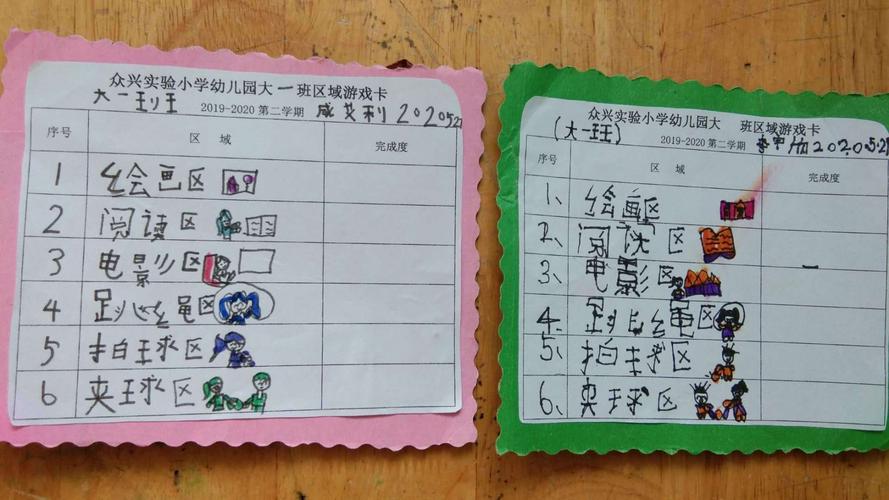 众兴实验小学幼儿园大一班区域游戏卡
大一班 2019-2020 第二学期 成艾利 2020 5.2
序号 区 域 完成度
1 绘画区
2 阅读区
3 电影区
4 跳绳区
5 拍球区
6 夹球区
众兴实验小学幼儿园大 班区域游戏卡
(大一班) 2019-2020 第二学期 2020.5.2
序号 区 域 完成度
1、 绘画区
2、 阅读区
3、 电影区
4、 跳绳区
5、 拍球区
6、 夹球区